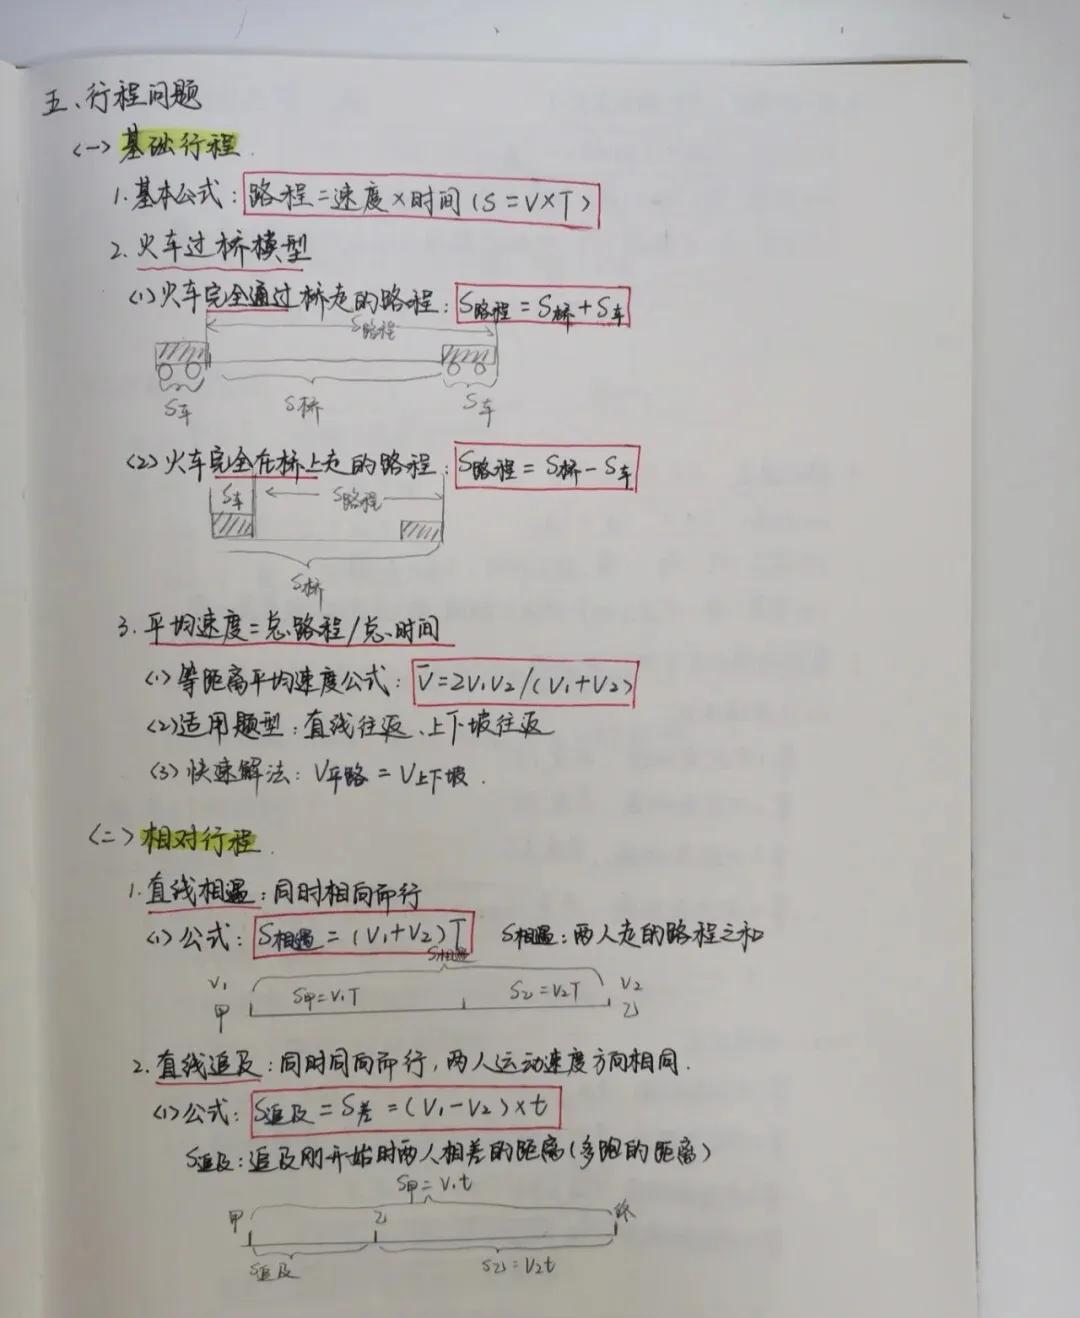 五、行程问题
<一> 基础行程.
1. 基本公式: 路程=速度×时间 (S=V×T)
2. 火车过桥模型
(1) 火车完全通过桥走的路程: S路程=S桥+S车
S路程
S车 S桥 S车
(2) 火车完全在桥上走的路程: S路程=S桥-S车
S车 S路程
S桥
3. 平均速度=总路程/总时间
(1) 等距离平均速度公式: V̄=2V₁V₂/(V₁+V₂)
(2) 适用题型: 直线往返、上下坡往返
(3) 快速解法: V平路=V上下坡.
<二> 相对行程.
1. 直线相遇: 同时相向而行
(1) 公式: S相遇=(V₁+V₂)T S相遇: 两人走的路程之和
S相遇
V₁ S甲=V₁T S乙=V₂T V₂
甲 乙
2. 直线追及: 同时同向而行, 两人运动速度方向相同.
(1) 公式: S追及=S差=(V₁-V₂)×t
S追及: 追及刚开始时两人相差的距离(多跑的距离)
S甲=V₁t
甲 乙
S追及 S乙=V₂t